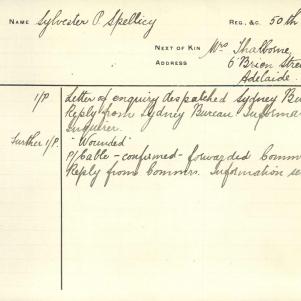 NAME Sylvester P. Spellicy REG. &C. 50th
NEXT OF KIN Mrs Thalbourne,
ADDRESS 6 Brien Stre
Adelaide.
1/P Letter of enquiry despatched Sydney Bu
Reply from Sydney Bureau. Informa
Enquirer.
Further 1/P. "Wounded"
P/Cable - confirmed - forwarded Comm
Reply from Commrs. Information se